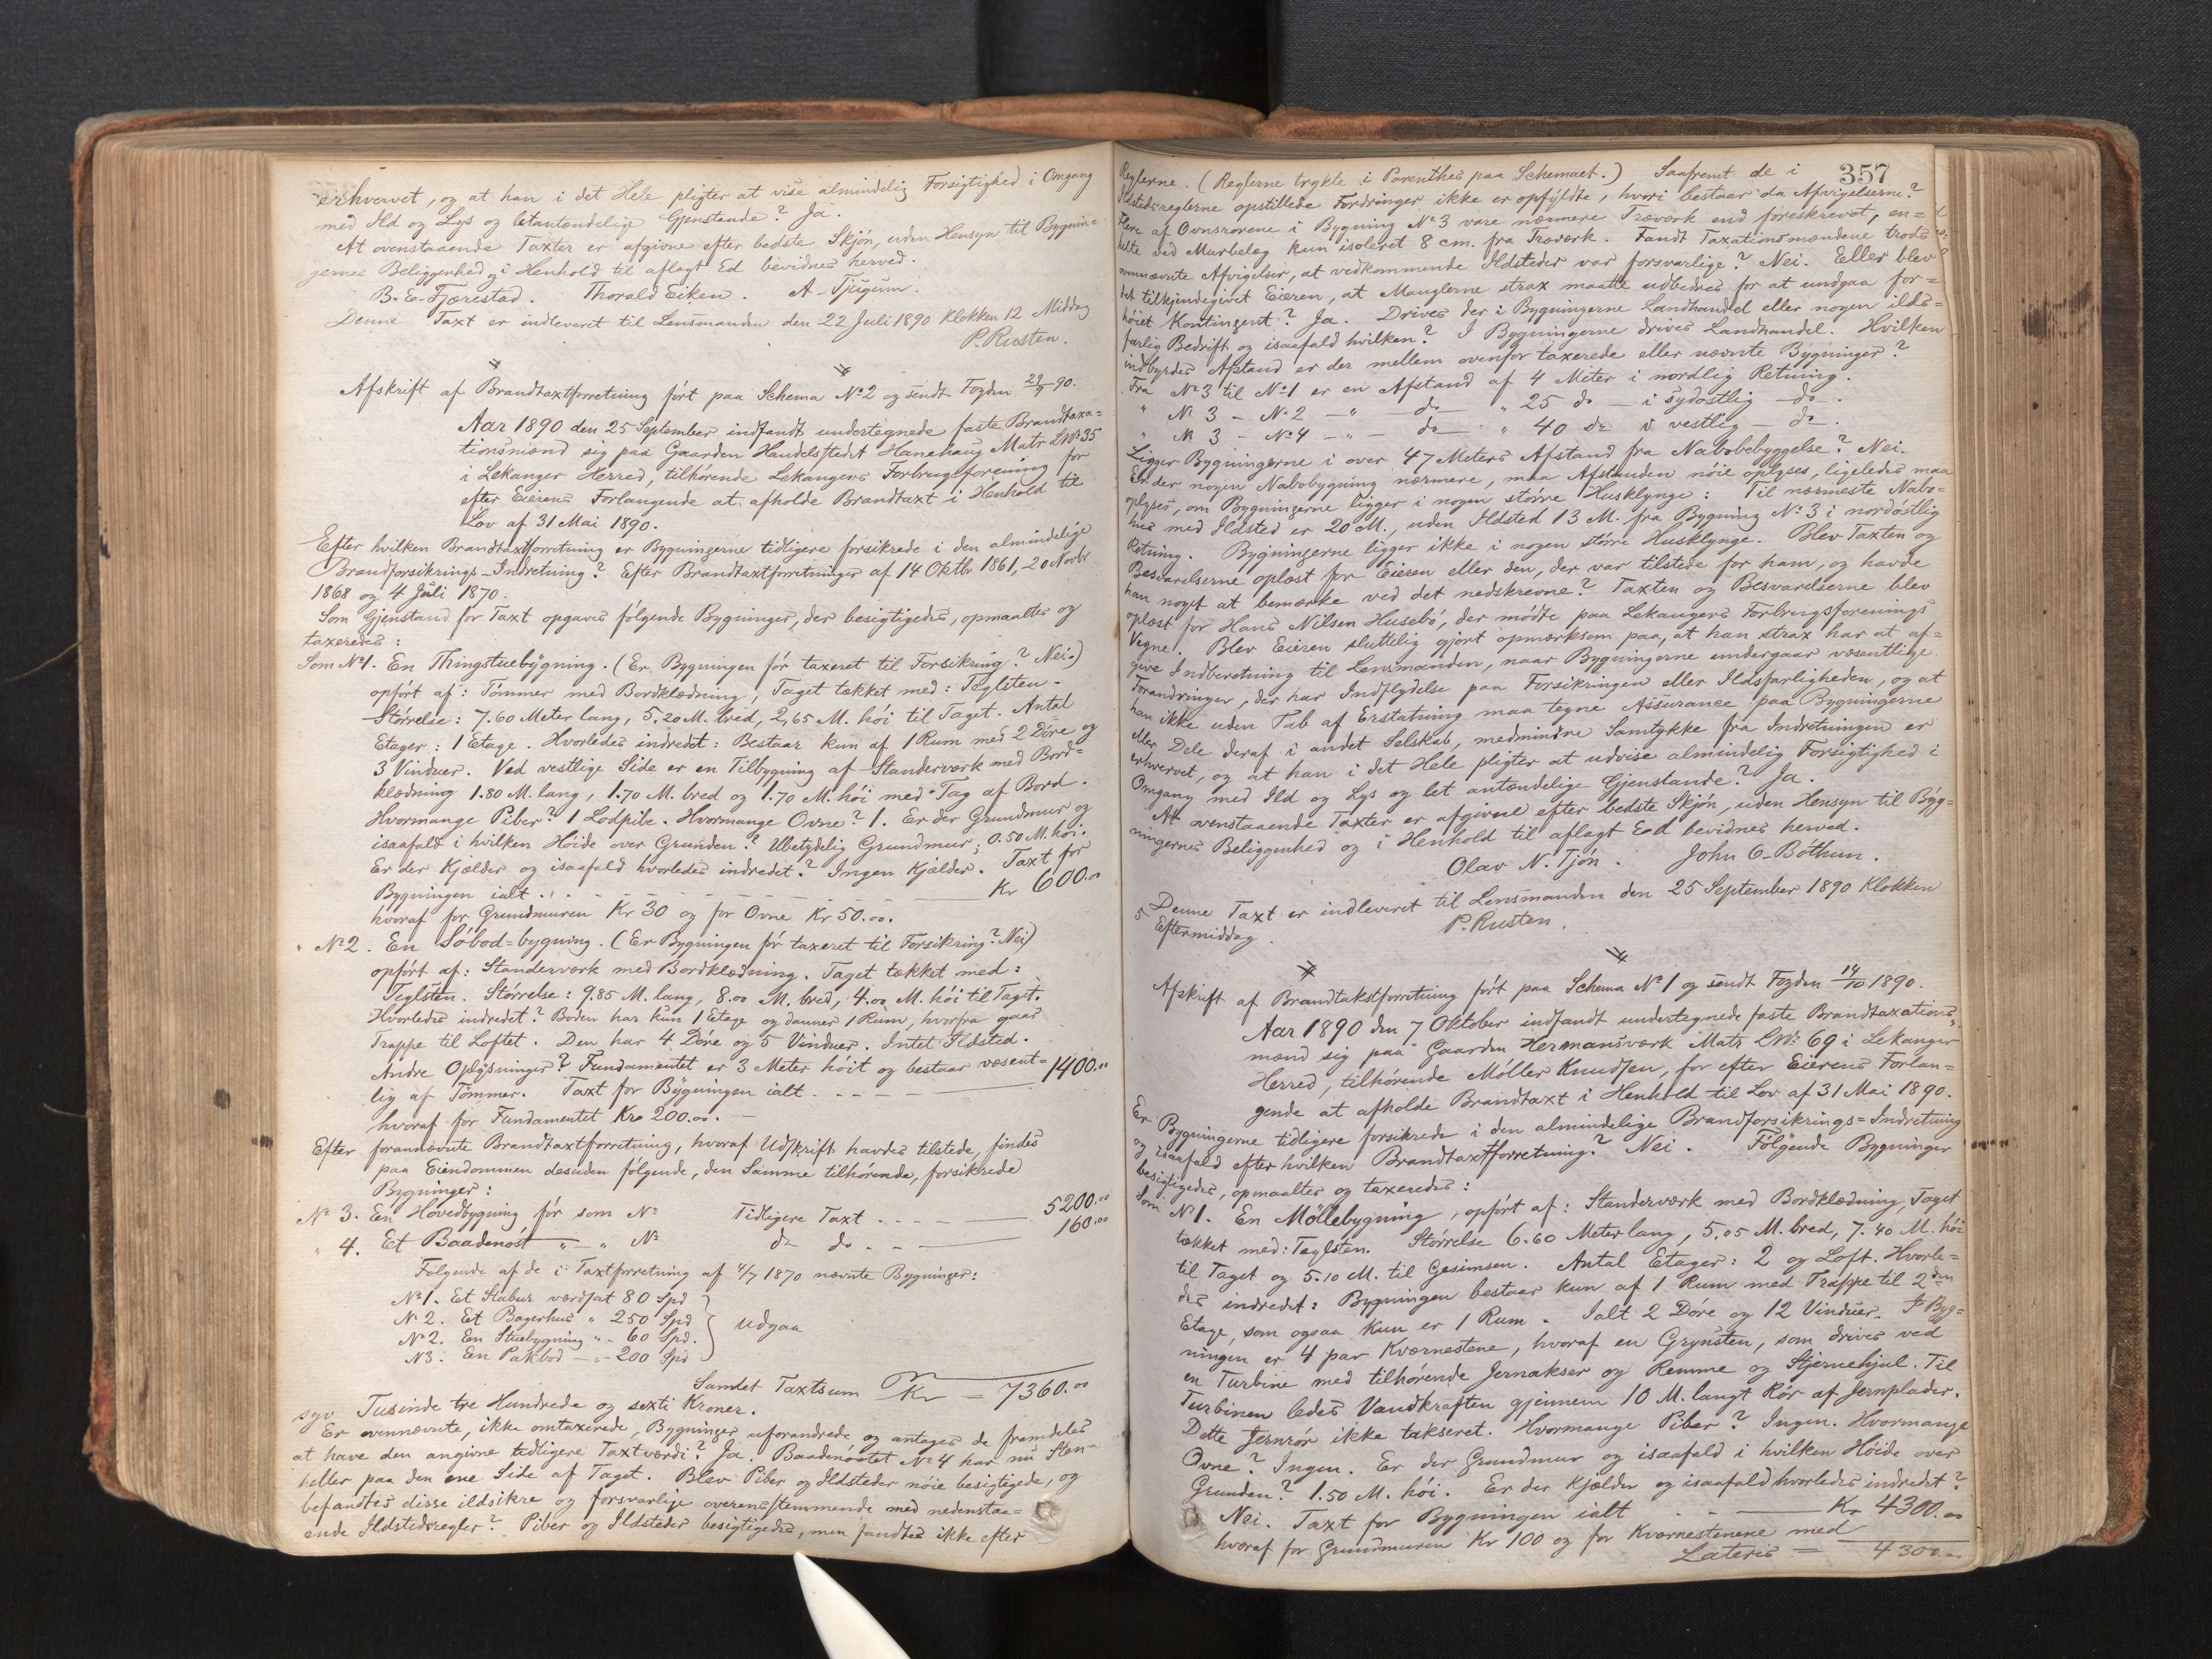 erhvervet, og at han i det Hele pligter at vise almindelig Forsigtighed i Omgang
med Ild og Lys og letantændelige Gjenstande? Ja.
At ovenstaaende Taxter er afgivne efter bedste Skjön, uden Hensyn til Bygnin=
gernes Beliggenhed og i Henhold til aflagt Ed bevidnes herved.
B. E. Fjærestad. Thorald Eiken. A. Tjugum.
Denne Taxt er indleveret til Lensmanden den 22 Juli 1890 Klokken 12 Middag
P. Rusten.
Afskrift af Brandtaxtforretning fört paa Schema No 2 og sendt Fogden 29/9 90.
Aar 1890 den 25 September indfandt undertegnede faste Brandtaxa=
tionsmænd sig paa Gaarden Handelsstedet Hanehaug Matr LNo 35
i Lekanger Herred, tilhörende Lekangers Forbrugsforening for
efter Eierens Forlangende at afholde Brandtaxt i Henhold til
Lov af 31 Mai 1890.
Efter hvilken Brandtaxtforretning er Bygningerne tidligere forsikrede i den almindelige
Brandforsikrings-Indretning? Efter Brandtaxtforretninger af 14 Oktbr 1861, 20 Novbr
1868 og 4 Juli 1870.
Som Gjenstand for Taxt opgaves fölgende Bygninger, der besigtigedes, opmaaltes og
taxeredes:
Som No 1. En Thingstuebygning. (Er Bygningen för taxeret til Forsikring? Nei.)
opfört af: Tömmer med Bordklædning, Taget tækket med: Teglsten.
Störrelse: 7.60 Meter lang, 5.20 M. bred, 2,65 M. höi til Taget. Antal
Etager: 1 Etage. Hvorledes indredet: Bestaar kun af 1 Rum med 2 Döre og
3 Vinduer. Ved vestlige Side er en Tilbygning af Standerværk med Bord=
klædning 1.80 M. lang, 1.70 M. bred og 1.70 M. höi med Tag af Bord.
Hvormange Piber? 1 Lodpibe. Hvormange Ovne? 1. Er der Grundmur og
isaafald i hvilken Höide over Grunden? Ubetydelig Grundmur; 0.50 M. höi.
Er der Kjælder og isaafald hvorledes indredet? Ingen Kjælder. Taxt for
Bygningen ialt . . - - - - - - Kr 600.00
hvoraf for Grundmuren Kr 30 og for Ovne Kr 50.00.
" No 2. En Söbod=bygning. (Er Bygningen för taxeret til Forsikring? Nei)
opfört af: Standerværk med Bordklædning. Taget tækket med:
Teglsten. Störrelse: 9.85 M. lang, 8.00 M. bred, 4.00 M. höi til Taget.
Hvorledes indredet? Boden har kun 1 Etage og danner 1 Rum, hvorfra gaar
Trappe til Loftet. Den har 4 Döre og 5 Vinduer. Intet Ildsted.
Andre Oplysninger? Fundamentet er 3 Meter höit og bestaar væsent=
lig af Tömmer. Taxt for Bygningen ialt - - - - - 1400.00
hvoraf for Fundamentet Kr 200.00. -
Efter forannævnte Brandtaxtforretning, hvoraf Udskrift havdes tilstede, findes
paa Eiendommen desuden fölgende, den Samme tilhörende, forsikrede
Bygninger:
No 3. En Hovedbygning för som No Tidligere Taxt - - - - 5200.00
" 4. Et Baadenöst " - " No do do - - 160.00
Fölgende af de i Taxtforretning af 4/7 1870 nævnte Bygninger:
No 1. Et Stabur værdsat 80 Spd
No 2. Et Bagerhus " 250 Spd
No 2. En Stuebygning " - 60 Spd.
No 3: En Pakbod - " - 200 Spd
Udgaa
Samlet Taxtsum Kr = 7360.00
syv Tusinde tre Hundrede og sexti Kroner.
Er ovennævnte, ikke omtaxerede, Bygninger uforandrede og antages de fremdeles
at have den angivne tidligere Taxtværdi? Ja. Baadenöstet No 4 har nu Sten=
heller paa den ene Side af Taget. Blev Piber og Ildsteder nöie besigtigede, og
befandtes disse ildsikre og forsvarlige overensstemmende med nedenstaa=
ende Ildstedsregler? Piber og Ildsteder besigtigedes, men fandtes ikke efter
357
Reglerne. (Reglerne trykte i Parenthes paa Schemaet.) Saafremt de i
Ildstedsreglerne opstillede Fordringer ikke er opfyldte, hvori bestaar da Afvigelserne?
Flere af Ovnsrörene i Bygning No 3 vare nærmere Træværk end foreskrevet, en=
kelte ved Murbelæg kun isoleret 8 cm. fra Træværk. Fandt Taxationsmændene trods
ovennævnte Afvigelser, at vedkommende Ildsteder var forsvarlige? Nei. Eller blev
det tilkjendegivet Eieren, at Manglerne strax maatte udbedres for at undgaa for=
höiet Kontingent? Ja. Drives der i Bygningerne Landhandel eller nogen ilds=
farlig Bedrift og isaafald hvilken? I Bygningerne drives Landhandel. Hvilken
indbyrdes Afstand er der mellem ovenfor taxerede eller nævnte Bygninger?
Fra No 3 til No 1 er en Afstand af 4 Meter i nordlig Retning.
" No 3 - No 2 - " - do - " 25 do - i sydöstlig - do.
" No 3 - No 4 - " - do - " 40 do i vestlig - do.
Ligger Bygningerne i over 47 Meters Afstand fra Nabobebyggelse? Nei.
Er der nogen Nabobygning nærmere, maa Afstanden nöie oplyses, ligeledes maa
oplyses, om Bygningerne ligger i nogen större Husklynge: Til nærmeste Nabo=
hus med Ildsted er 20 M., uden Ildsted 13 M. fra Bygning No 3 i nordöstlig
Retning. Bygningerne ligger ikke i nogen större Husklynge. Blev Taxten og
Besvarelserne oplæst for Eieren eller den, der var tilstede for ham, og havde
han noget at bemærke ved det nedskrevne? Taxten og Besvarelserne blev
oplæst for Hans Nilsen Husebö, der mödte paa Lekangers Forbrugsforenings
Vegne. Blev Eieren sluttelig gjort opmærksom paa, at han strax har at af=
give Indberetning til Lensmanden, naar Bygningerne undergaar væsentlige
Forandringer, der har Indflydelse paa Forsikringen eller Ildsfarligheden, og at
han ikke uden Tab af Erstatning maa tegne Assurance paa Bygningerne
eller Dele deraf i andet Selskab, medmindre Samtykke fra Indretningen er
erhvervet, og at han i det Hele pligter at udvise almindelig Forsigtighed i
Omgang med Ild og Lys og let antændelige Gjenstande? Ja.
At ovenstaaende Taxter er afgivne efter bedste Skjön, uden Hensyn til Byg=
ningernes Beliggenhed og i Henhold til aflagt Ed bevidnes herved.
Olav N. Tjön. John O. Bothun.
Denne Taxt er indleveret til Lensmanden den 25 September 1890 Klokken
5 Eftermiddag. P. Rusten.
Afskrift af Brandtakstforretning fört paa Schema No 1 og sendt Fogden 14/10 1890.
Aar 1890 den 7 Oktober indfandt undertegnede faste Brandtaxations=
mænd sig paa Gaarden Hermansværk Matr LNo 69 i Lekanger
Herred, tilhörende Möller Knudsen, for efter Eierens Forlan=
gende at afholde Brandtaxt i Henhold til Lov af 31 Mai 1890.
Er Bygningerne tidligere forsikrede i den almindelige Brandforsikrings=Indretning
og isaafald efter hvilken Brandtaxtforretning? Nei. Fölgende Bygninger
besigtigedes, opmaaltes og taxeredes:
Som No 1. En Möllebygning, opfört af: Standerværk med Bordklædning, Taget
tækket med: Teglsten. Störrelse 6.60 Meter lang, 5.05 M. bred, 7.40 M. höi
til Taget og 5.10 M. til Gesimsen. Antal Etager: 2 og Loft. Hvorle=
des indredet: Bygningen bestaar kun af 1 Rum med Trappe til 2den
Etage, som ogsaa kun er 1 Rum. Ialt 2 Döre og 12 Vinduer. I Byg=
ningen er 4 par Kværnestene, hvoraf en Grynsten, som drives ved
en Turbine med tilhörende Jernakser og Remme og Stjernehjul. Til
Turbinen ledes Vandkraften gjennem 10 M. langt Rör af Jernplader.
Dette Jernrör ikke takseret. Hvormange Piber? Ingen. Hvormange
Ovne? Ingen. Er der Grundmur og isaafald i hvilken Höide over
Grunden? 1.50 M. höi. Er der Kjælder og isaafald hvorledes indredet?
Nei. Taxt for Bygningen ialt - - Kr 4300.00
hvoraf for Grundmuren Kr 100 og for Kværnestenene med
Lateris = 4300.00